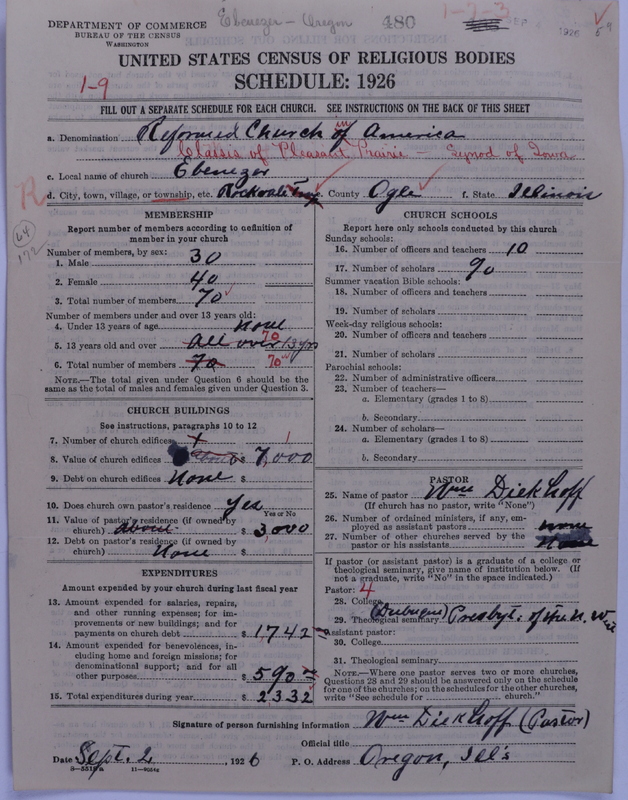 DEPARTMENT OF COMMERCE
BUREAU OF THE CENSUS
WASHINGTON
Ebenezer – Oregon 480
1-2-3
SEP 4 1926
5-9
UNITED STATES CENSUS OF RELIGIOUS BODIES
SCHEDULE: 1926
1-9
FILL OUT A SEPARATE SCHEDULE FOR EACH CHURCH. SEE INSTRUCTIONS ON THE BACK OF THIS SHEET
a. Denomination Reformed Church of in America
Classis of Pleasant Prairie Synod of Iowa
c. Local name of church Ebenezer
R d. City, town, village, or township, etc. Rockvale Twp County Ogle f. State Illinois
64
172
MEMBERSHIP
Report number of members according to definition of
member in your church
Number of members, by sex:
1. Male 30
2. Female 40
3. Total number of members 70
Number of members under and over 13 years old:
4. Under 13 years of age none
5. 13 years old and over all over 13 yrs 70
6. Total number of members 70 70
NOTE.—The total given under Question 6 should be the
same as the total of males and females given under Question 3.
CHURCH BUILDINGS
See instructions, paragraphs 10 to 12
7. Number of church edifices 1
8. Value of church edifices about $ 7,000
9. Debt on church edifices None $
10. Does church own pastor's residence yes
Yes or No
11. Value of pastor's residence (if owned by
church) about $ 3,000
12. Debt on pastor's residence (if owned by
church) None $
EXPENDITURES
Amount expended by your church during last fiscal year
13. Amount expended for salaries, repairs,
and other running expense; for im-
provements or new buildings; and for
payments on church debt $ 1742
14. Amount expended for benevolences, in-
cluding home and foreign missions; for
denominational support; and for all
other purposes $ 590
15. Total expenditures during year $ 2332
CHURCH SCHOOLS
Report here only schools conducted by this church
Sunday schools:
16. Number of officers and teachers 10
17. Number of scholars 90
Summer vacation Bible schools:
18. Number of officers and teachers
19. Number of scholars
Week-day religious schools:
20. Number of officers and teachers
21. Number of scholars
Parochial schools:
22. Number of administrative officers
23. Number of teachers—
a. Elementary (grades 1 to 8)
b. Secondary
24. Number of scholars—
a. Elementary (grades 1 to 8)
b. Secondary
PASTOR
25. Name of pastor Wm Dickhoff
(If church has no pastor, write "None")
26. Number of ordained ministers, if any, em-
ployed as assistant pastors none
27. Number of other churches served by the
pastor or his assistants none
If pastor (or assistant pastor) is a graduate of a college or
theological seminary, give name of institution below. (If
not a graduate, write "No" in the space indicated.)
Pastor: 4
28. College
29. Theological seminary (Dubuque) Presbyt. of the N. W
Assistant pastor:
30. College
31. Theological seminary
NOTE.—Where one pastor serves two or more churches,
Questions 28 and 29 should be answered only on the schedule
for one of the churches; on the schedules for the other churches,
write "See schedule for church."
Signature of person furnishing information Wm Dickhoff (Pastor)
Official title
Date Sept. 2, 1926 P. O. Address Oregon, Ill's
8—5518a 11—9054g